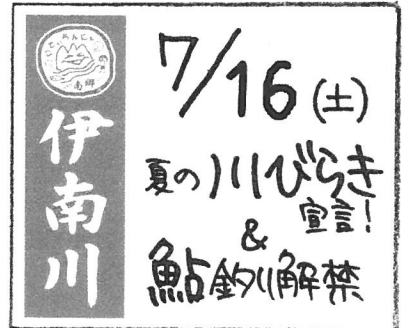 南郷
伊南川
7/16(土)
夏の川びらき
宣言!
&
鮎釣り解禁